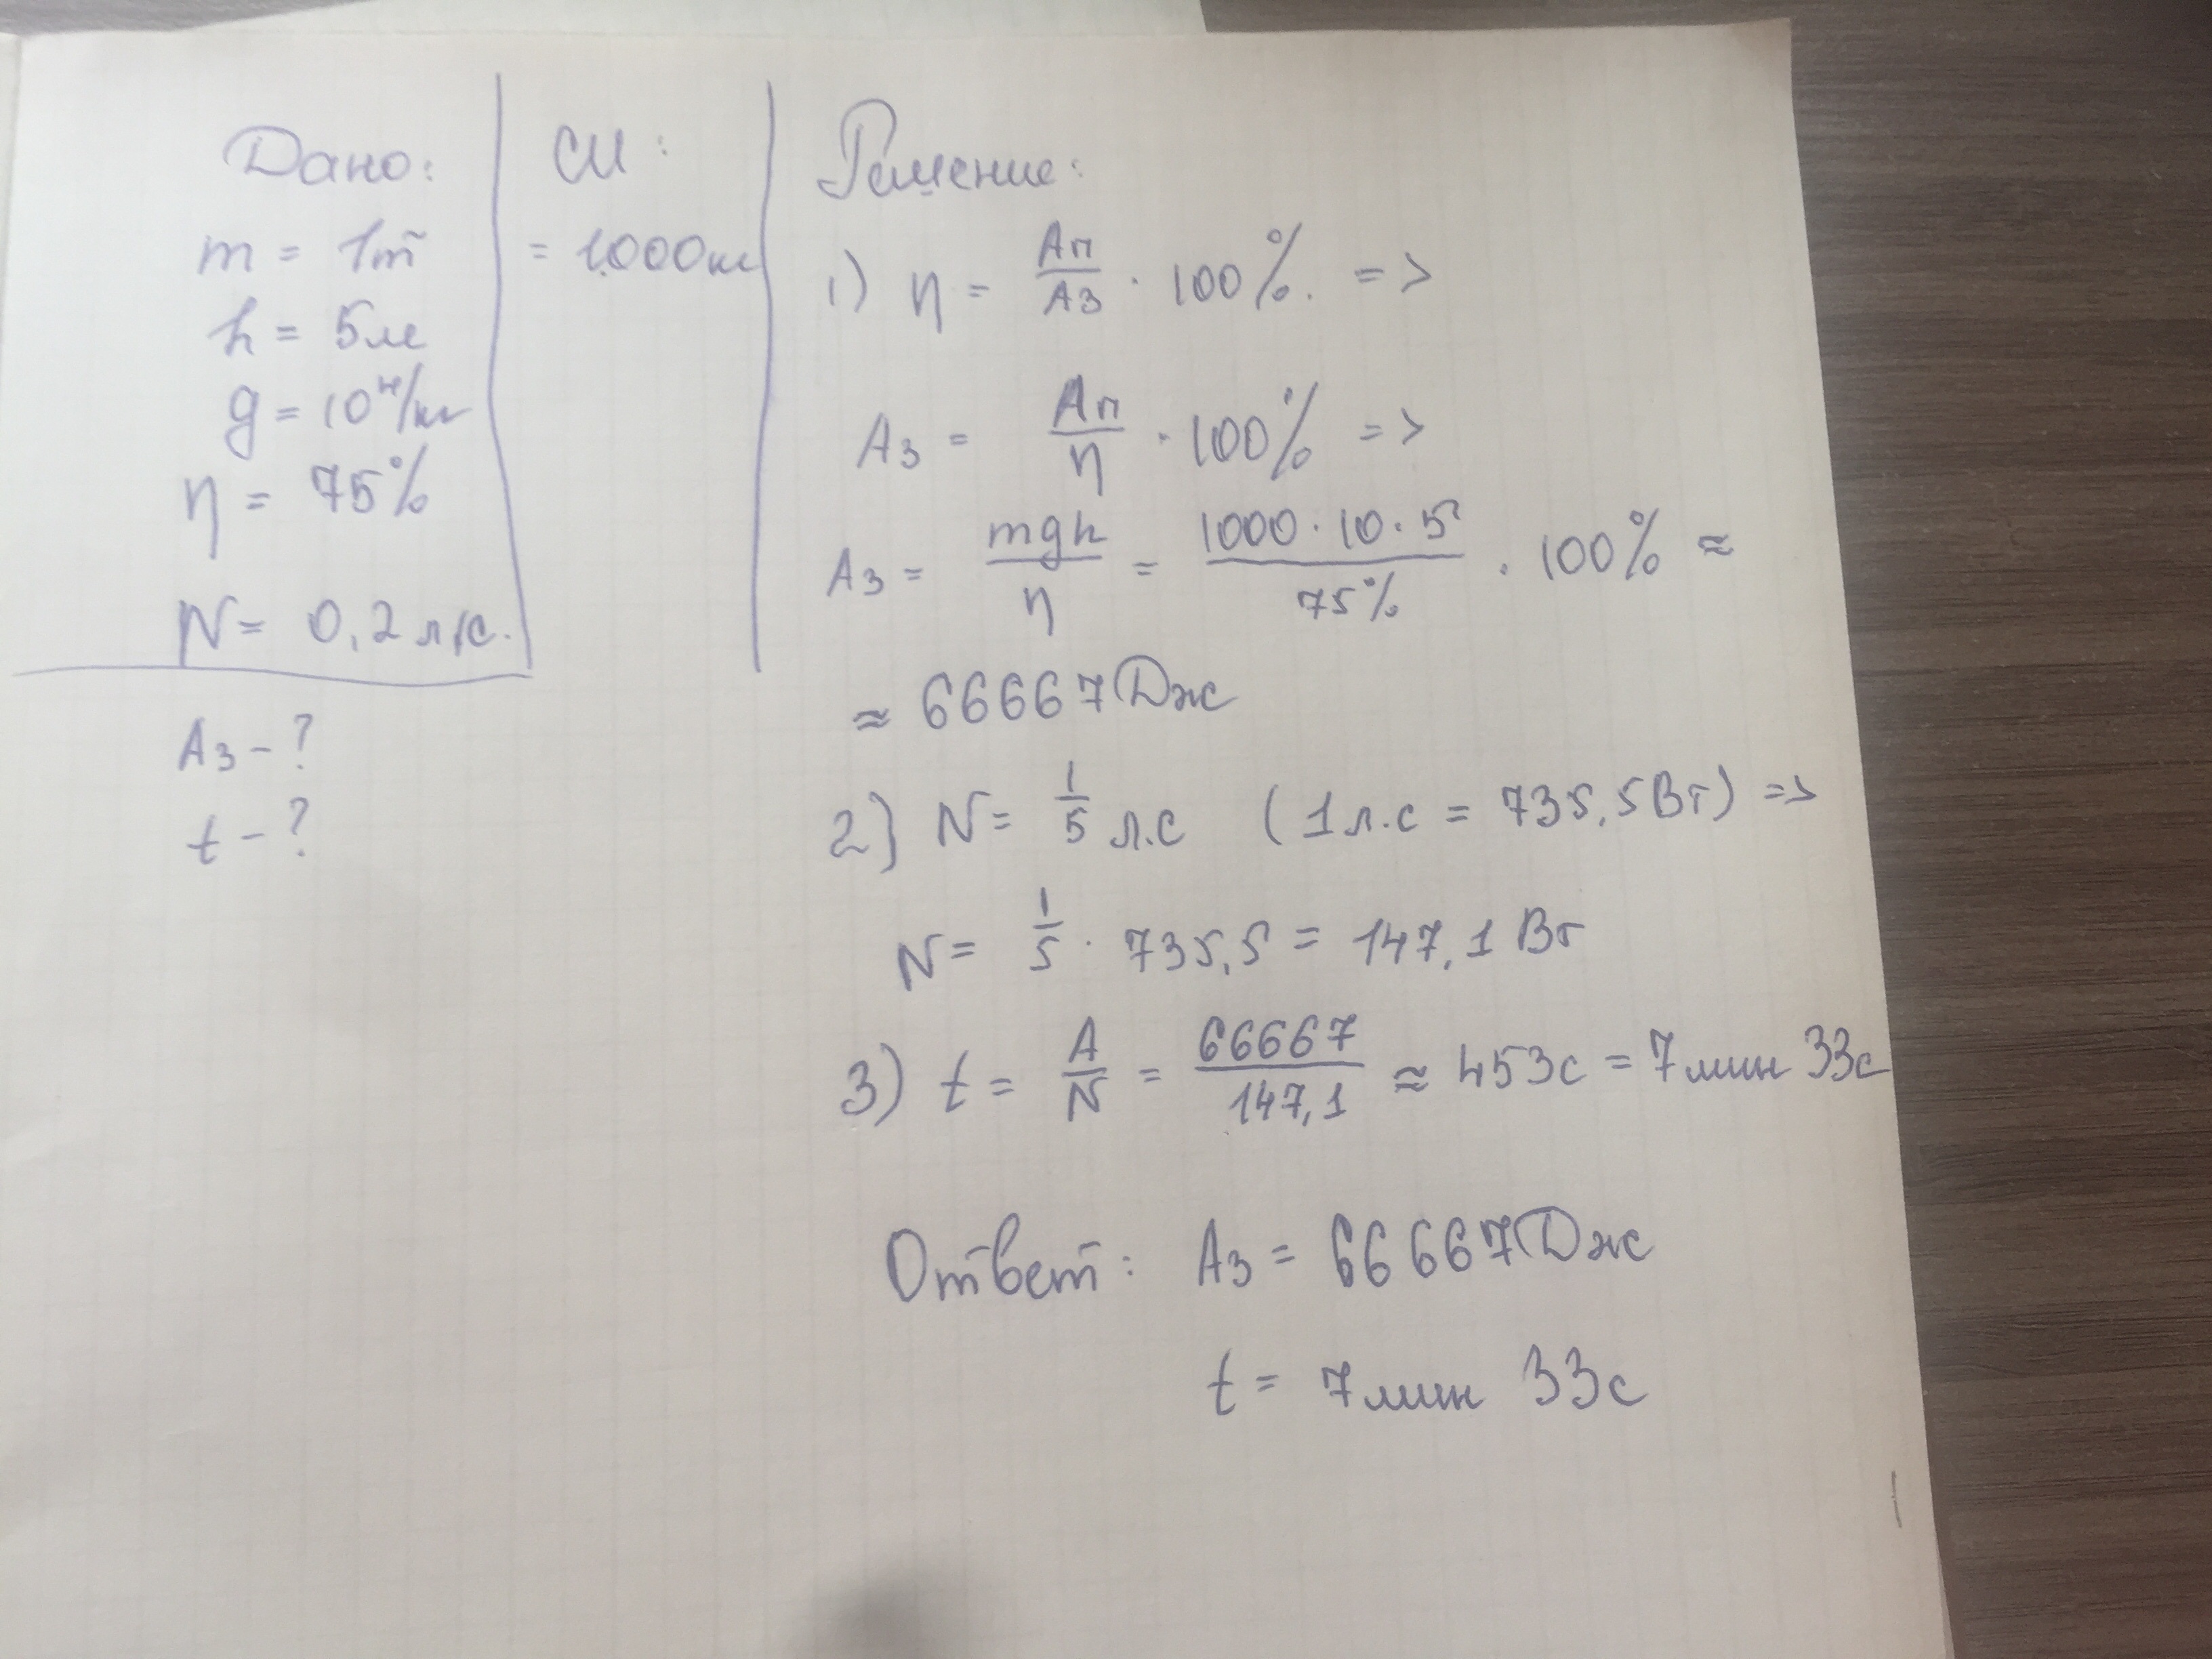 Дано:
m = 1т
h = 5м
g = 10 н/кг
η = 75%
N = 0,2 л.с.
Aз - ?
t - ?
СИ:
= 1000кг
Решение:
1) η = Aп/Aз · 100%. =>
Aз = Aп/η · 100% =>
Aз = mgh/η = 1000·10·5/75% · 100% ≈
≈ 66667 Дж
2) N = 1/5 л.с (1 л.с = 735,5 Вт) =>
N = 1/5 · 735,5 = 147,1 Вт
3) t = A/N = 66667/147,1 ≈ 453с = 7 мин 33с
Ответ: Aз = 66667 Дж
t = 7 мин 33с